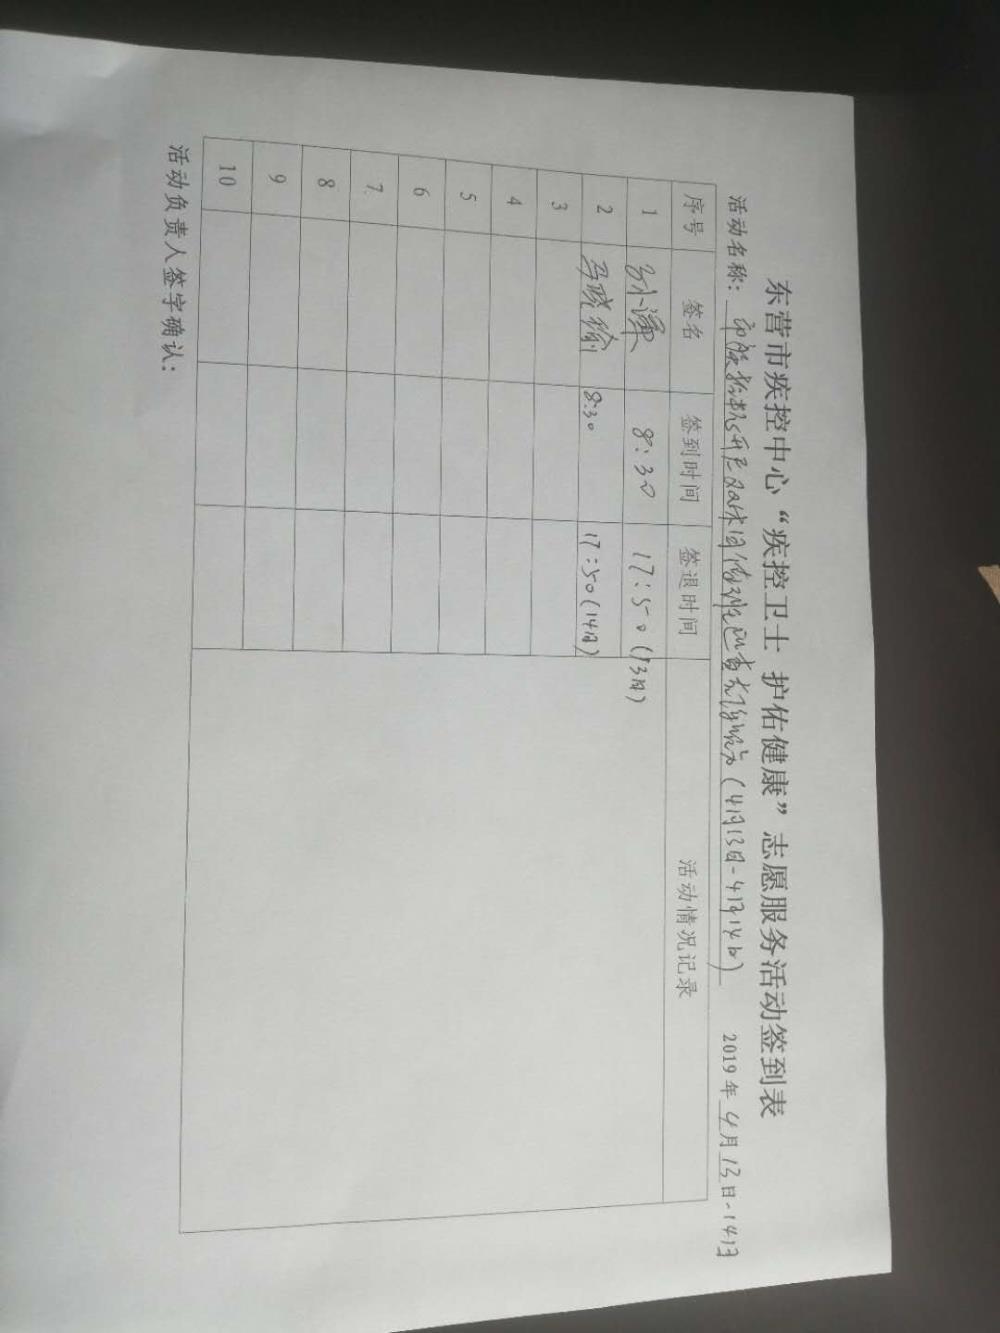 东营市疾控中心“疾控卫士 护佑健康”志愿服务活动签到表
活动名称： (4月13日-4月14日) 2019年4月13日-14日
序号 签名 签到时间 签退时间 活动情况记录
1 8:30 17:50(13日)
2 马晓瑜 8:30 17:50(14日)
3
4
5
6
7
8
9
10
活动负责人签字确认：